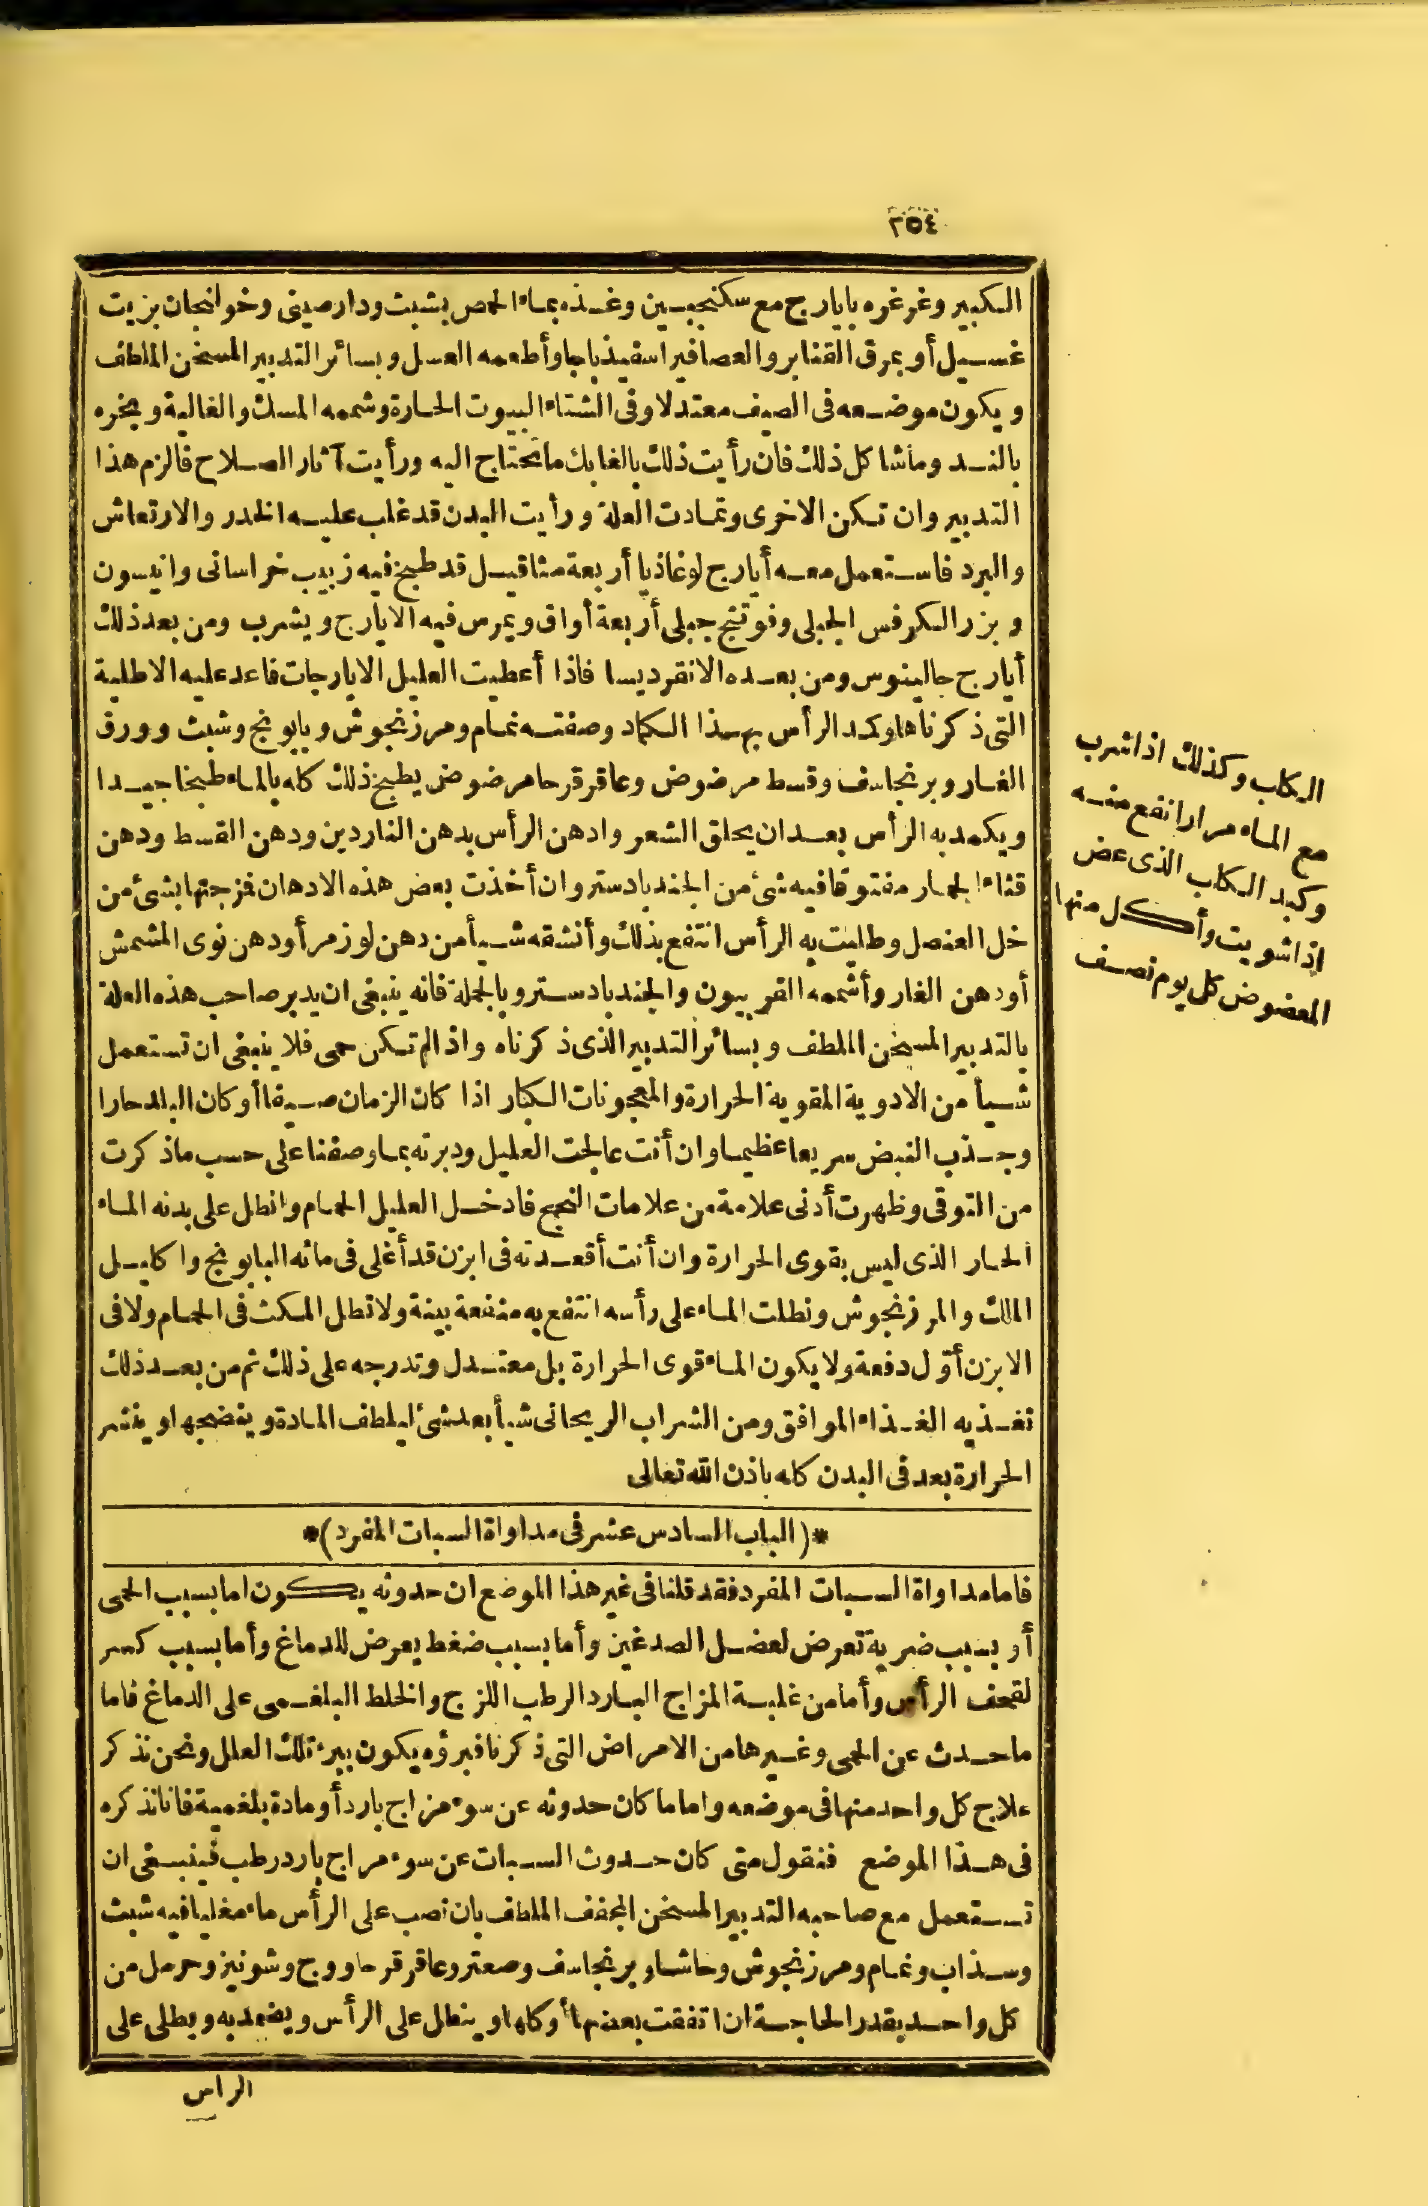 ٢٥٤
الكبير وغرغره بايارج مع سكنجبين وغذه بماء الحمص بشبث ودارصينى وخولنجان بزيت
غسيل أو بمرق القنابر والعصافير اسفيذباجا وأطعمه العسل وبسائر التدبير المسخن الملطف
ويكون موضعه فى الصيف معتدلا وفى الشتاء البيوت الحارة وشممه المسك والغالية وبخره
بالند وماشاكل ذلك فان رأيت ذلك بالغابك ماتحتاج اليه ورأيت آثار الصلاح فالزم هذا
التدبير وان تكن الاخرى وتمادت العلة ورأيت البدن قد غلب عليه الخدر والارتعاش
والبرد فاستعمل معه أيارج لوغاذيا أربعة مثاقيل قد طبخ فيه زبيب خراسانى وانيسون
وبزر الكرفس الجبلى وفوتنج جبلى أربعة أواق ويمرس فيه الايارج ويشرب ومن بعد ذلك
أيارج جالينوس ومن بعده الانقرديسا فاذا أعطيت العليل الايارجات فاعد عليه الاطلية
التى ذكرناها وكمد الرأس بهذا الكماد وصفته نمام ومرزنجوش وبابونج وشبث وورق
الغار وبرنجاسف وقسط مرضوض وعاقرقرحا مرضوض يطبخ ذلك كله بالماء طبخا جيدا
ويكمد به الرأس بعد ان يحلق الشعر وادهن الرأس بدهن الناردين ودهن القسط ودهن
قثاء الحمار مفتوقا فيه شئ من الجندبادستر وان أخذت بعض هذه الادهان فمزجتها بشئ من
خل العنصل وطليت به الرأس انتفع بذلك وأنشقه شيأ من دهن لوز مر أو دهن نوى المشمش
أو دهن الغار وأشممه الفربيون والجندبادستر وبالجملة فانه ينبغى ان يدبر صاحب هذه العلة
بالتدبير المسخن الملطف وبسائر التدبير الذى ذكرناه واذا لم تكن حمى فلا ينبغى ان تستعمل
شيأ من الادوية المقوية الحرارة والمعجونات الكبار اذا كان الزمان صيفا أو كان البلد حارا
وجذب النبض سريعا عظيما وان أنت عالجت العليل ودبرته بما وصفنا على حسب ماذكرت
من التوقى وظهرت أدنى علامة من علامات النجح فادخل العليل الحمام وانطل على بدنه الماء
الحار الذى ليس بقوى الحرارة وان أنت أقعدته فى ابزن قد أغلى فى مائه البابونج واكليل
الملك والمرزنجوش ونطلت الماء على رأسه انتفع به منفعة بينة ولا تطل المكث فى الحمام ولا فى
الابزن أوّل دفعة ولا يكون الماء قوى الحرارة بل معتدل وتدرجه على ذلك ثم من بعد ذلك
تغذيه الغذاء الموافق ومن الشراب الريحانى شيأ بعد شئ ليلطف المادة وينضجها وينشر
الحرارة بعد فى البدن كله باذن الله تعالى
*(الباب السادس عشر فى مداواة السبات المفرد)*
فاما مداواة السبات المفرد فقد قلنا فى غير هذا الموضع ان حدوثه يكون اما بسبب الحمى
أو بسبب ضربة تعرض لعضل الصدغين وأما بسبب ضغط يعرض للدماغ وأما بسبب كسر
لقحف الرأس وأما من غلبة المزاج البارد الرطب اللزج والخلط البلغمى على الدماغ فاما
ماحدث عن الحمى وغيرها من الامراض التى ذكرنا فبرؤه يكون ببرء تلك العلل ونحن نذكر
علاج كل واحد منها فى موضعه واما ما كان حدوثه عن سوء مزاج بارد أو مادة بلغمية فانا نذكره
فى هذا الموضع فنقول متى كان حدوث السبات عن سوء مزاج بارد رطب فينبغى ان
تستعمل مع صاحبه التدبير المسخن المجفف الملطف بان تصب على الرأس ماء مغليا فيه شبث
وسذاب ونمام ومرزنجوش وحاشا وبرنجاسف وصعتر وعاقرقرحا ووج وشونيز وحرمل من
كل واحد بقدر الحاجة ان اتفقت بعضها أو كلها وينطل على الرأس ويضمد به ويطلى على
الراس
الكلب وكذلك اذا شرب
مع الماء مرارا نفع منه
وكبد الكلب الذى عض
اذا شويت وأكل منها
المعضوض كل يوم نصف